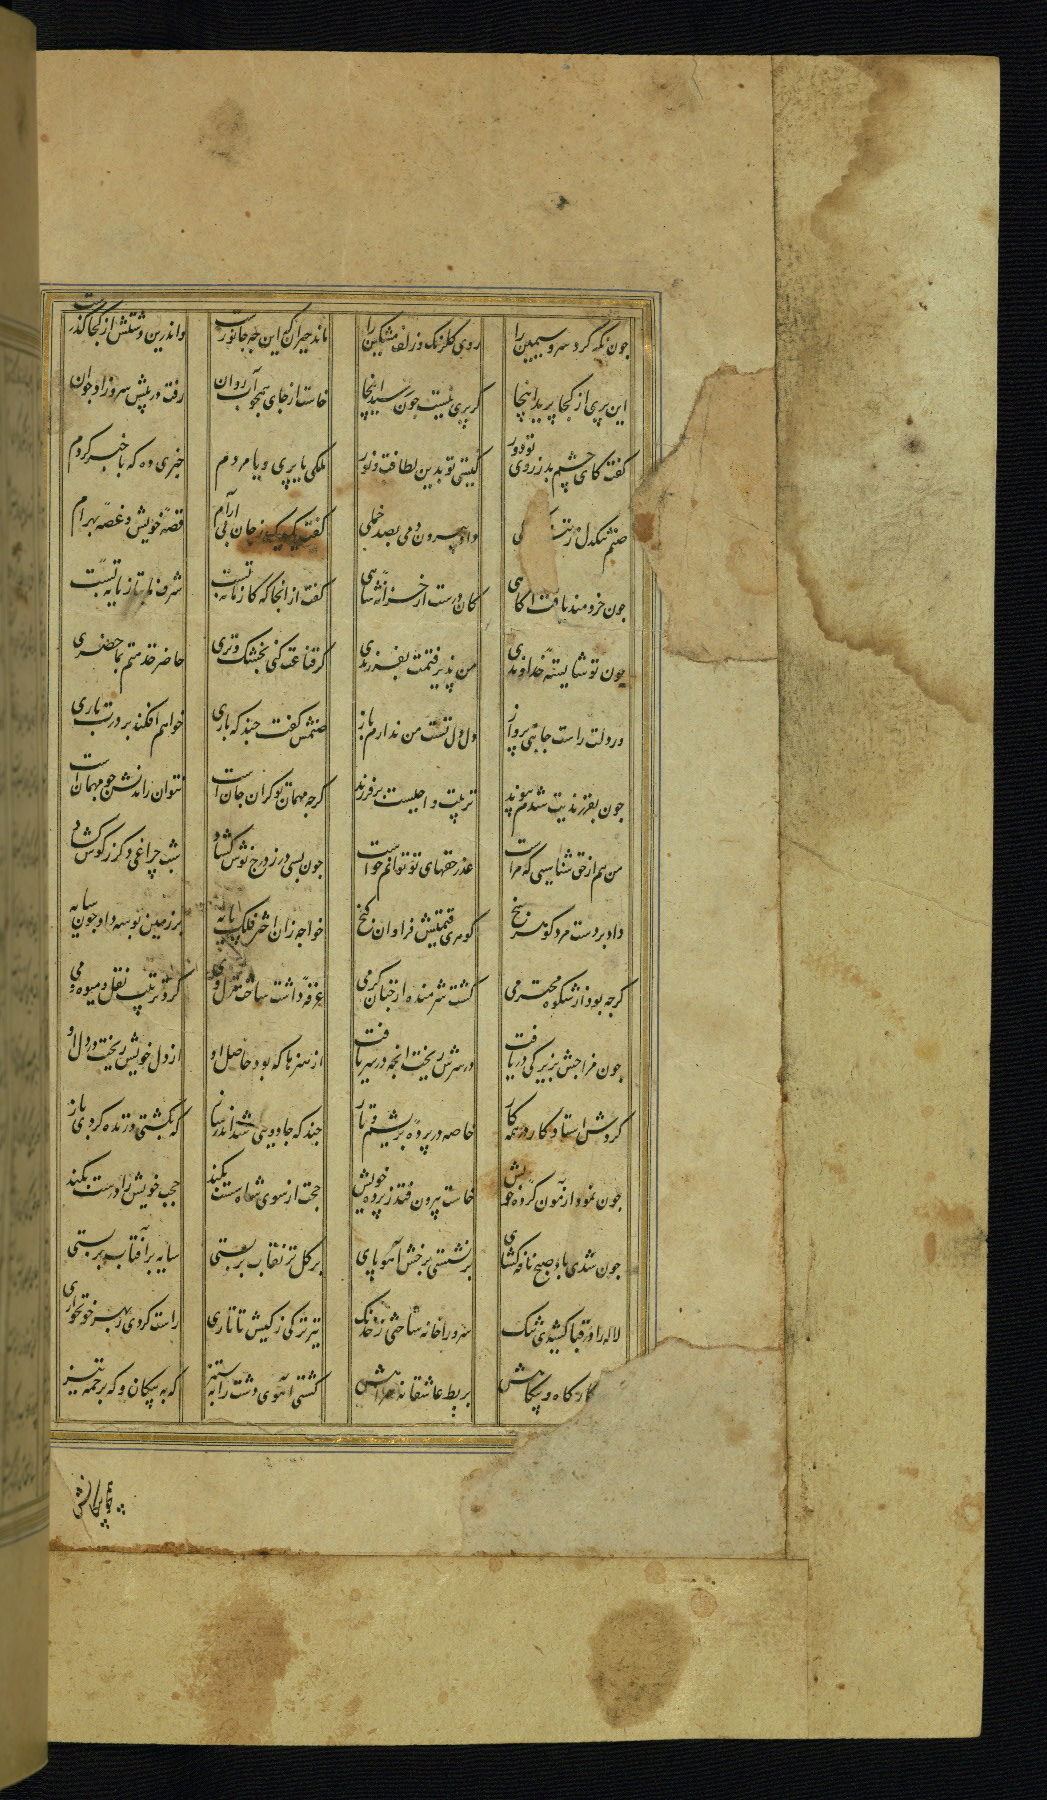 چون نکه کرد سرو سیمین را روی کلرنک و زلف مشکین را ماند حیران که این چه جانورست واندرین وشتش از کجا کذرست
این پری از کجا پرید اینجا کر پری نیست چون رسید اینجا خاست از جای همچو آب روان رفت در پیش سرو زاد جوان
کفت کای چشم بد ز روی تو دور کیستی تو بدین لطافت و نور ملکی یا پری و یا مردم خبری ده که با خبر کردم
صنم تنکدل ز داد بیرون دمی بصد خجلی کفت یک یک ز جان بی آرام قصه خویش و غصه بهرام
چون خردمند یافت آکاهی کان درست از خزانه شاهی کفت از آنجا که کار مایه تست شرف ما بتازه پایه تست
چون تو شایسته خداوندی من پذیرفتمت بفرزندی کر قناعت کنی بخشک و تری حاضر خدمتم بما حضری
ور دلت راست جا بی پرواز دل دل تست من ندارم باز صنمش کفت چند که باری خواهم افکند بر درت باری
چون بفرزندیت شدم پیوند تربیت واجبست بر فرزند کرچه مهمان تو کران جان است نتوان راندنش چو مهمان است
من هم از حق شناسیی که مراست عذر حقهای تو توانم خواست چون بسی در ز درج نوش کشاد شب چراغی دکر ز کوش کشاد
داد بر دست مرد کوهر سنج کوهری قیمتیش فراوان کنج خواجه زان اختر فلک پایه بر زمین بوسه داد چون سایه
کرچه بود از شکوه محترمی کشت شرمنده از چنان کرمی غرفه داشت ساخت منزل وی کرد ترتیب نقل و میوه و می
چون مزاجش بزیرکی دریافت در سرش ریخت انچه در سر یافت از هنرها که بود حاصل او از دل خویش ریخت در دل او
کردش استاد کار در همه کار خاصه در پرده بریشم و تار چند که جادویی شد اندر ساز که بکشتی و زنده کردی باز
چون نمود آزمون کرده خویش خاست بیرون فتد ز پرده خویش حجت از سوی شاه سست نکند حجب خویش را درست نکند
چون شدی باد صبح نافه کشای بر نشستی برخش آهو پای بر کل تر نقاب بر بستی سایه بر آفتاب بر بستی
لاله را در قبا کشیدی تنک سرو را خانه ساختی ز خدنک تیر ترکی ز کیش تاتاری راست کردی بهر خونخواری
کاه و بیکاهش بربط عاشقانه همراهش کشتی آهوی دشت را به ستیز که به پیکان و که بزخمه تیز